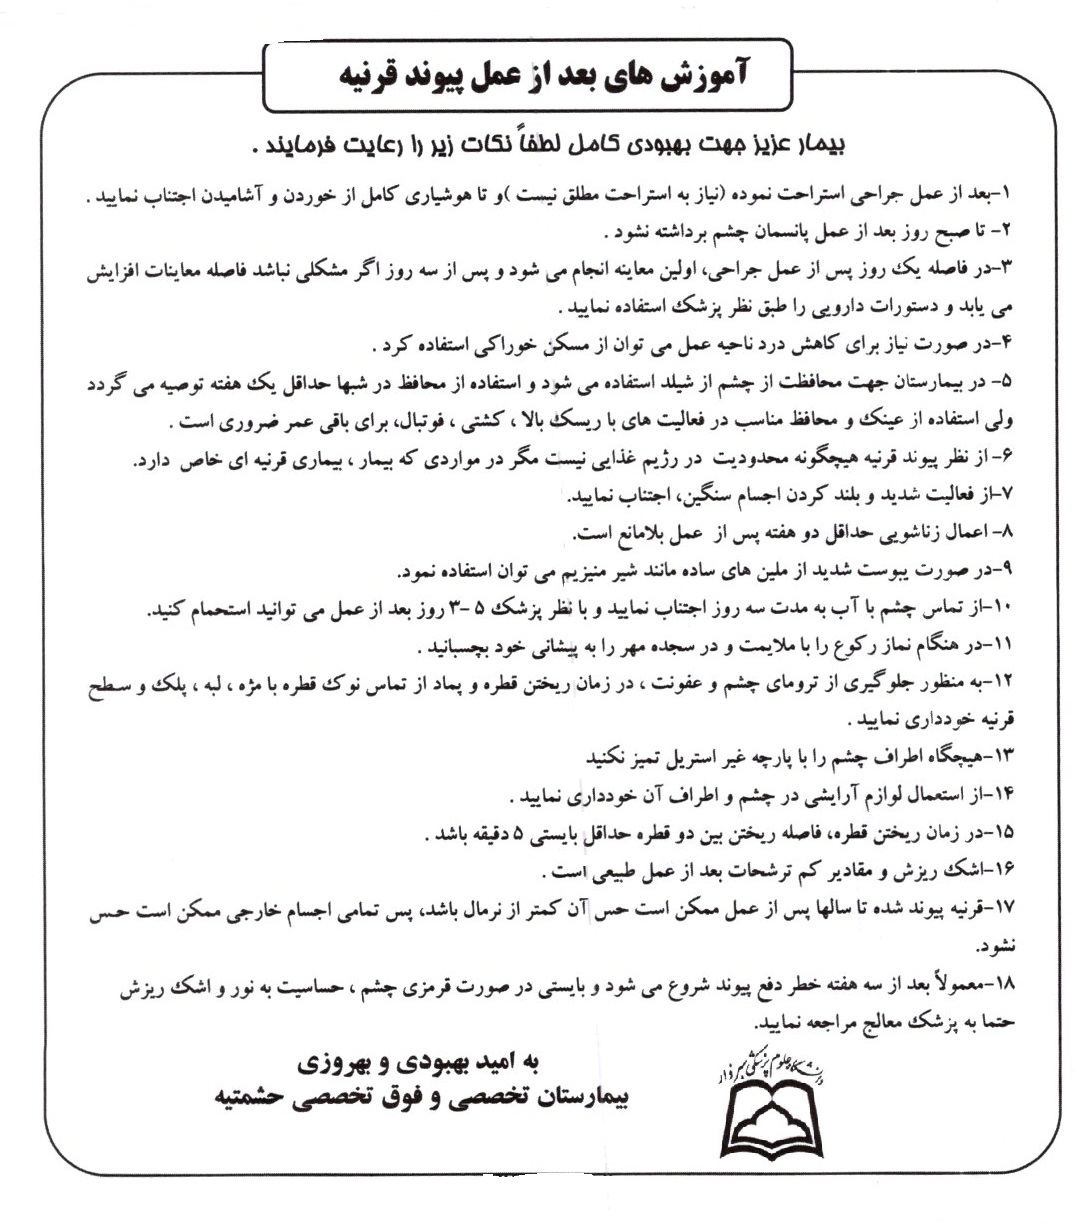 آموزش های بعد از عمل پیوند قرنیه
بیمار عزیز جهت بهبودی کامل لطفاً نکات زیر را رعایت فرمایند .
۱-بعد از عمل جراحی استراحت نموده (نیاز به استراحت مطلق نیست )و تا هوشیاری کامل از خوردن و آشامیدن اجتناب نمایید .
۲- تا صبح روز بعد از عمل پانسمان چشم برداشته نشود .
۳-در فاصله یک روز پس از عمل جراحی، اولین معاینه انجام می شود و پس از سه روز اگر مشکلی نباشد فاصله معاینات افزایش
می یابد و دستورات دارویی را طبق نظر پزشک استفاده نمایید .
۴-در صورت نیاز برای کاهش درد ناحیه عمل می توان از مسکن خوراکی استفاده کرد .
۵- در بیمارستان جهت محافظت از چشم از شیلد استفاده می شود و استفاده از محافظ در شبها حداقل یک هفته توصیه می گردد
ولی استفاده از عینک و محافظ مناسب در فعالیت های با ریسک بالا ، کشتی ، فوتبال، برای باقی عمر ضروری است .
۶- از نظر پیوند قرنیه هیچگونه محدودیت در رژیم غذایی نیست مگر در مواردی که بیمار ، بیماری قرنیه ای خاص دارد.
۷-از فعالیت شدید و بلند کردن اجسام سنگین، اجتناب نمایید.
۸- اعمال زناشویی حداقل دو هفته پس از عمل بلامانع است.
۹-در صورت یبوست شدید از ملین های ساده مانند شیر منیزیم می توان استفاده نمود.
۱۰-از تماس چشم با آب به مدت سه روز اجتناب نمایید و با نظر پزشک ۵ -۳ روز بعد از عمل می توانید استحمام کنید.
۱۱-در هنگام نماز رکوع را با ملایمت و در سجده مهر را به پیشانی خود بچسبانید .
۱۲-به منظور جلوگیری از ترومای چشم و عفونت ، در زمان ریختن قطره و پماد از تماس نوک قطره با مژه ، لبه ، پلک و سطح
قرنیه خودداری نمایید .
۱۳-هیچگاه اطراف چشم را با پارچه غیر استریل تمیز نکنید
۱۴-از استعمال لوازم آرایشی در چشم و اطراف آن خودداری نمایید .
۱۵-در زمان ریختن قطره، فاصله ریختن بین دو قطره حداقل بایستی ۵ دقیقه باشد .
۱۶-اشک ریزش و مقادیر کم ترشحات بعد از عمل طبیعی است .
۱۷-قرنیه پیوند شده تا سالها پس از عمل ممکن است حس آن کمتر از نرمال باشد، پس تمامی اجسام خارجی ممکن است حس
نشود.
۱۸-معمولاً بعد از سه هفته خطر دفع پیوند شروع می شود و بایستی در صورت قرمزی چشم ، حساسیت به نور و اشک ریزش
حتما به پزشک معالج مراجعه نمایید.
به امید بهبودی و بهروزی
بیمارستان تخصصی و فوق تخصصی حشمتیه
دانشگاه علوم پزشکی سبزوار